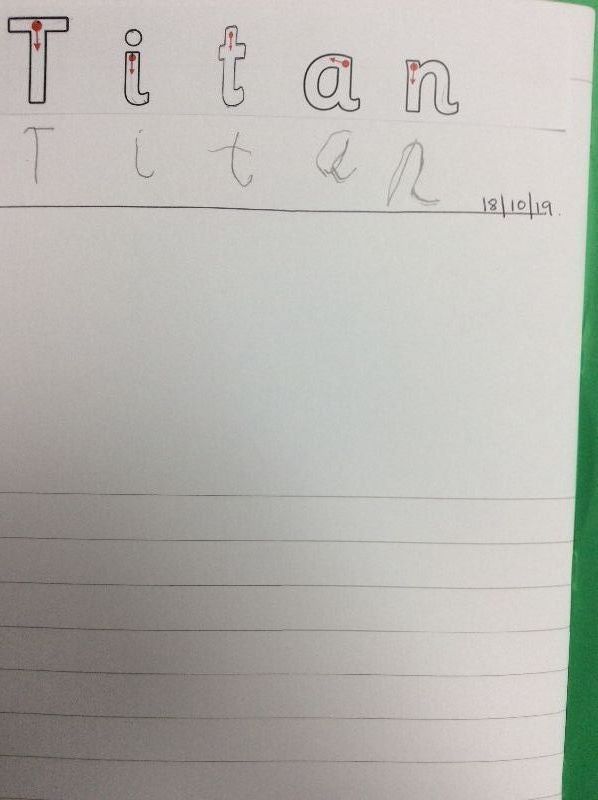 T i t a n
T i t a n
18/10/19.